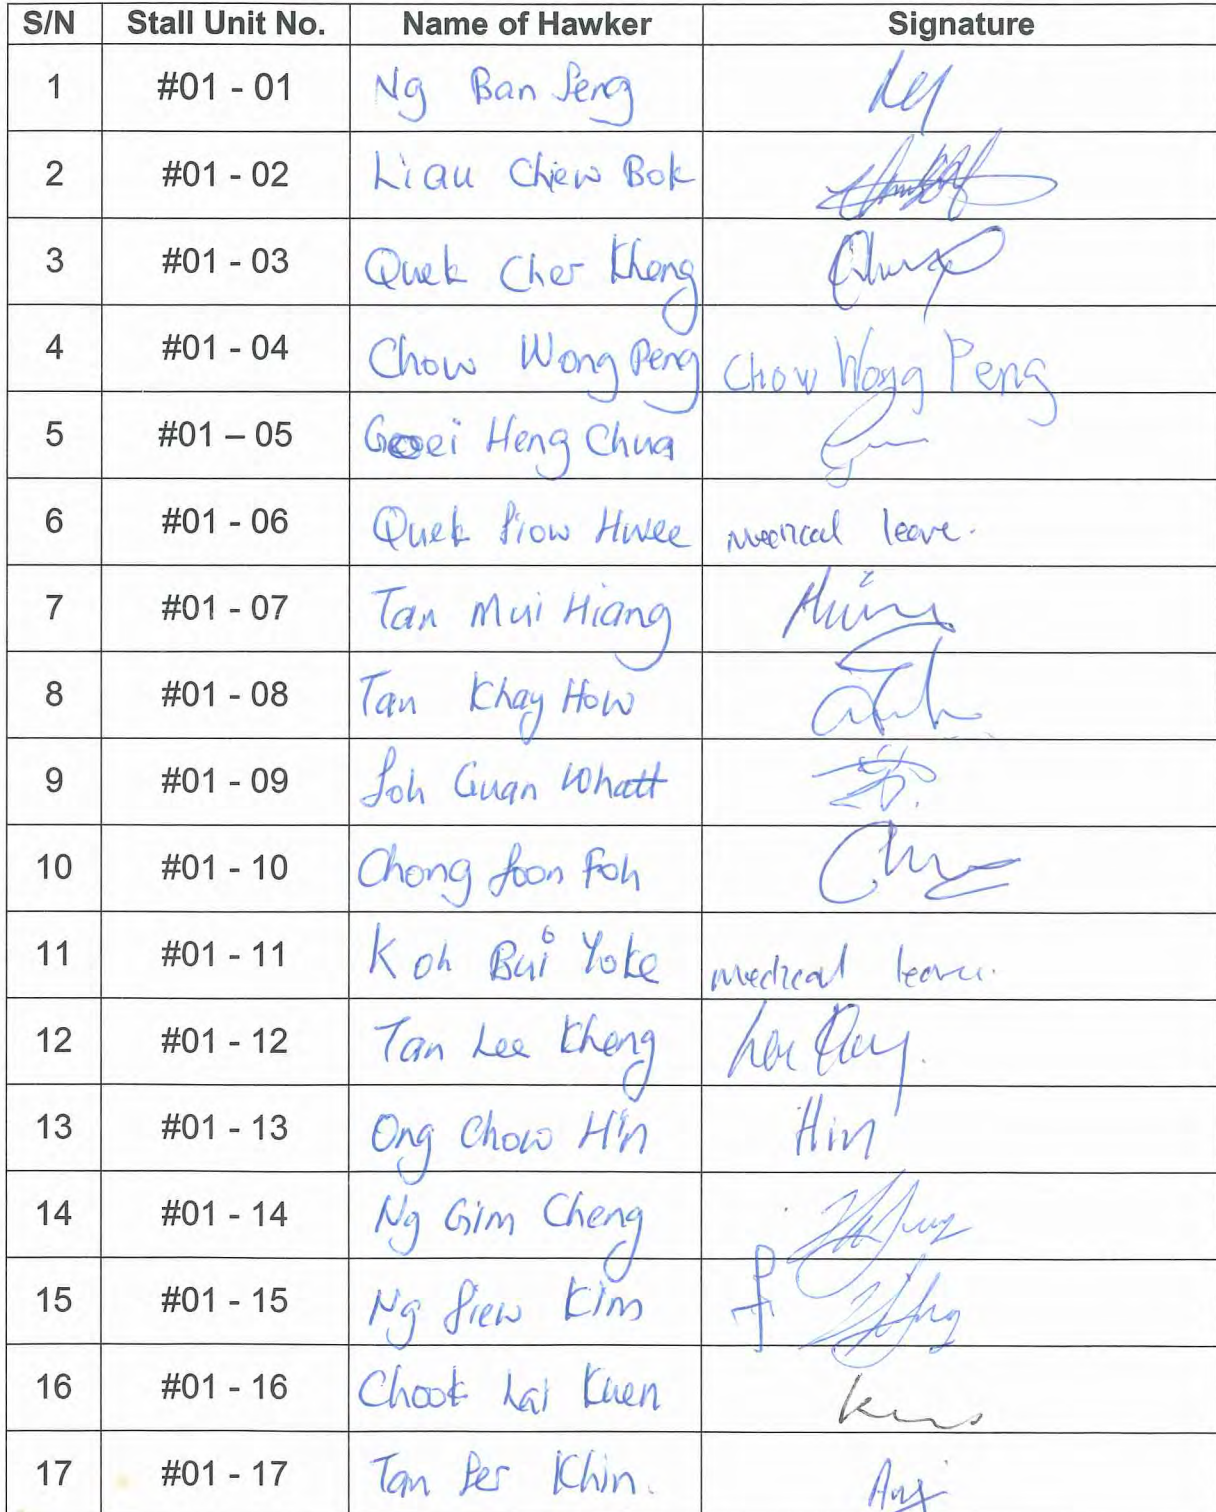 S/N Stall Unit No. Name of Hawker Signature
1 #01 - 01 Ng Ban Seng
2 #01 - 02 Liau Chiew Bok
3 #01 - 03 Quek Cher Khong
4 #01 - 04 Chow Wong Peng Chow Wong Peng
5 #01 – 05 Heng Chua
6 #01 - 06 Quek Siow Hwee medical leave.
7 #01 - 07 Tan Mui Hiang
8 #01 - 08 Tan Khay How
9 #01 - 09 Soh Guan Whatt
10 #01 - 10 Chong Soon Foh
11 #01 - 11 Koh Bui Yoke medical leave.
12 #01 - 12 Tan Lee Kheng
13 #01 - 13 Ong Chow Hin Hin
14 #01 - 14 Ng Gim Cheng
15 #01 - 15 Ng Siew Kim
16 #01 - 16 Chook Lai Kuen
17 #01 - 17 Tan Per Khin.